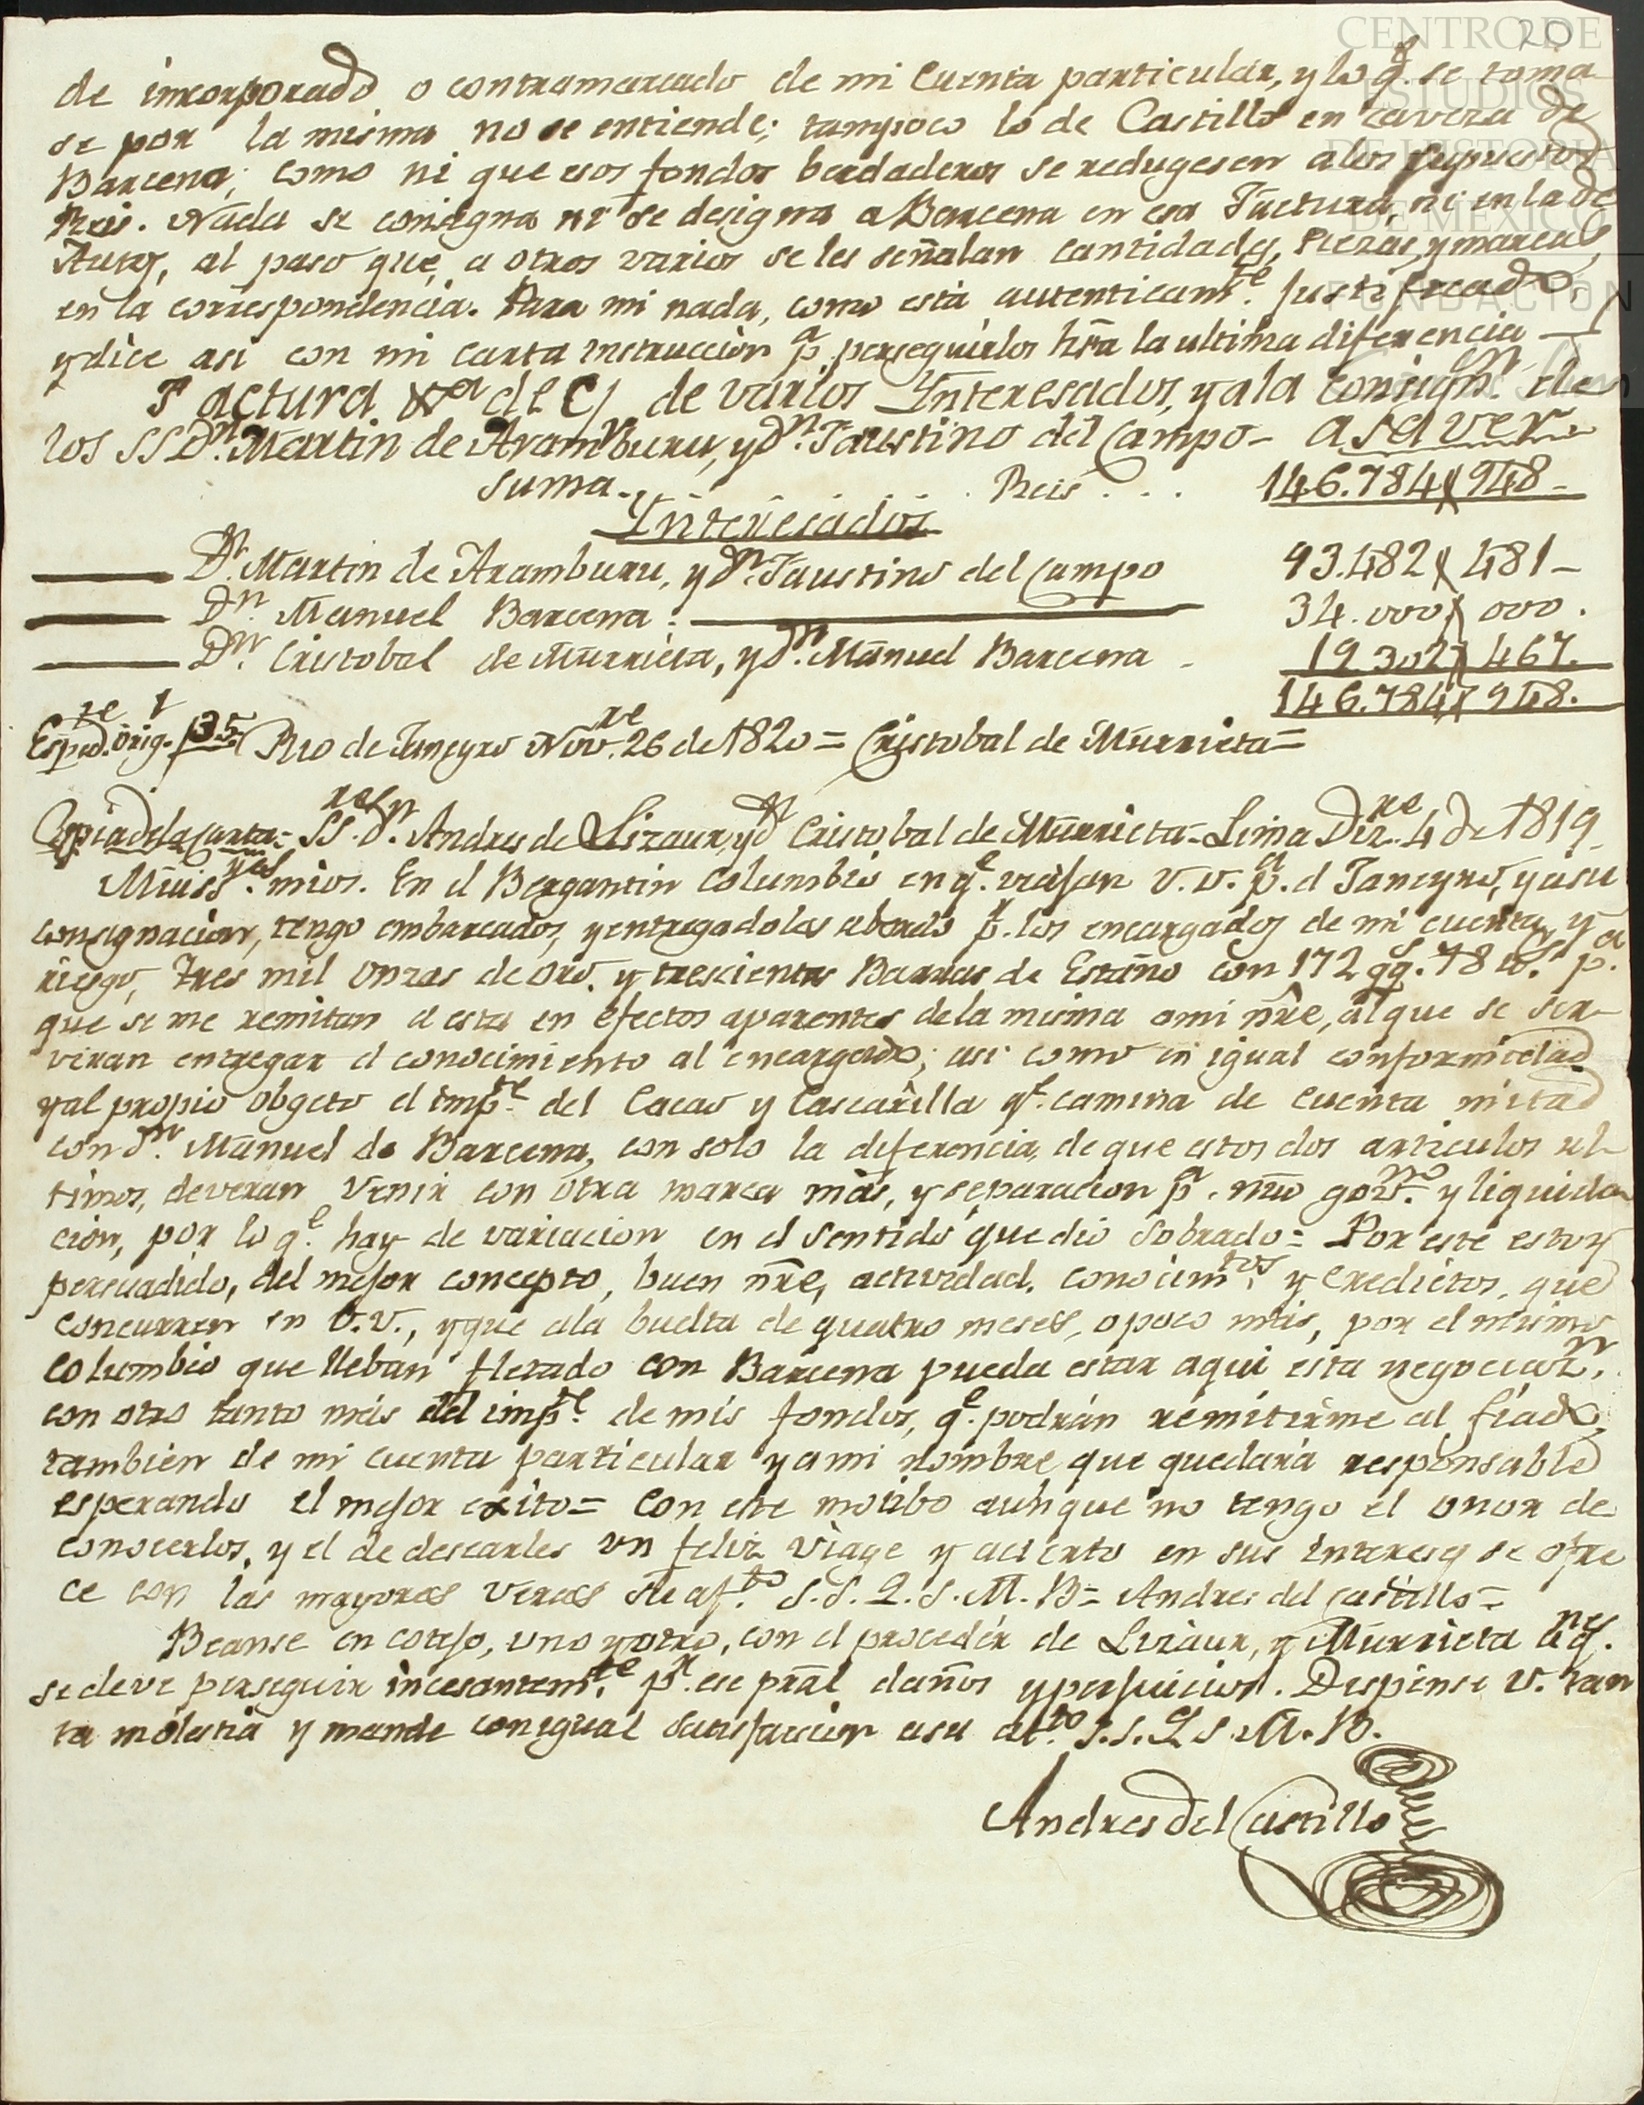 20
CENTRO DE
ESTUDIOS
DE HISTORIA
DE MEXICO
FUNDACIÓN
de incorporado o contramarcado de mi Cuenta particular, y lo q.e se toma
se por la misma no se entiende; tampoco lo de Castillo en cavera de
Barcena; como ni que esos fondos berdaderos se redugesen a los supuestos
Reis. Nada se consigna ni se designa a Barcena en esa Factura, ni en la de
Autos, al paso que, a otros varios se les señalan cantidades, Piezas, y marcas,
en la correspondencia. Para mi nada, como está autenticam.te justificado,
y dice asi con mi carta instruccion p.a perseguirlos hta la ultima diferencia —
Factura de de varios Interesados, y a la consign.n de
los SS D.n Martin de Aramburu, y D.n Faustino del Campo - asaver
suma. . Reis . . . 146.784 948 -
Interesados
D.n Martin de Aramburu, y D.n Faustino del Campo 93.482 481 -
D.n Manuel Barcena . 34.000 000 .
D.n Cristobal de Murrieta, y D.n Manuel Barcena - 19 302 467.
146.784 948.
Esped.te orig.l f 35 Rio de Janeyro Nov.re 26 de 1820 = Cristobal de Murrieta =
Copia de la Carta = SS.res D.n Andres de Lizaur, y D.n Cristobal de Murrieta - Lima Diz.re 4 de 1819 -
Muis S.res mios. En el Bergantin Columbio en q.e viajan V.V. p.a el Janeyro, y a su
consignacion, tengo embarcados, y entregadoles abordo p.r los encargados de mi cuenta, y
riesgo, tres mil onzas de oro, y trescientas Barras de Estaño con 172 qq.s 78 lb.s p.a
que se me remitan a esta en efectos aparentes de la misma a mi nre, al que se ser-
viran entregar el conocimiento al encargado; asi como en igual conformidad
y al propio obgeto el imp.te del Cacao y Cascarilla q.e camina de cuenta mitad
con D.n Manuel de Barcena, con solo la diferencia, de que estos dos articulos ul-
timos, deveran venir con otra marca mas, y separacion p.a nuo gov.no y liquida
cion, por lo q.e hay de variacion en el sentido que dio sobrado = Por este estoy
persuadido, del mejor concepto, buen nre, actividad, conocim.tos y creditos, que
concurren en V.V., y que a la buelta de quatro meses, o poco más, por el mismo
columbio que lleban fletado con Barcena pueda estar aqui esta negociaz.n,
con otro tanto más del imp.te de mis fondos, q.e podrán remitirme al fiado,
tambien de mi cuenta particular y a mi nombre que quedará responsable
esperando el mejor exito = Con este motibo aunque no tengo el onor de
conocerlos, y el de desearles un feliz viage y acierto en sus intereses se ofre
ce con las mayores veras su af.to S.S.Q.S.M.B = Andres del Castillo =
Beanse en cotejo, uno y otro, con el proceder de Lizaur, y Murrieta
se deve perseguir incesantem.te p.r ese pral daños y perjuicios. Dispense V. tan
ta molestia y mande con igual satisfaccion a su at.to S.S.Q S.M.B.
Andres del Castillo